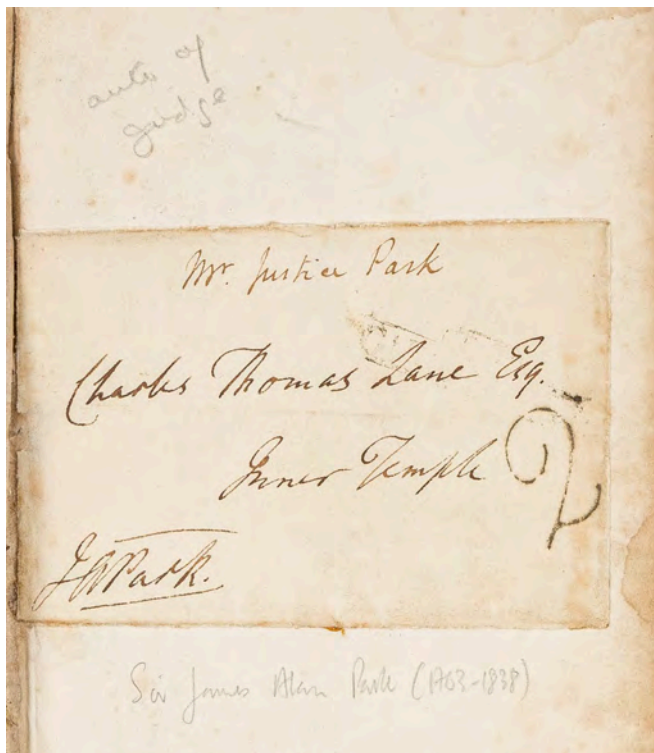 auto of
judge
Mr. Justice Park
Charles Thomas Lane Esq.
Inner Temple
2
JAPark.
Sir James Alan Park (1763-1838)